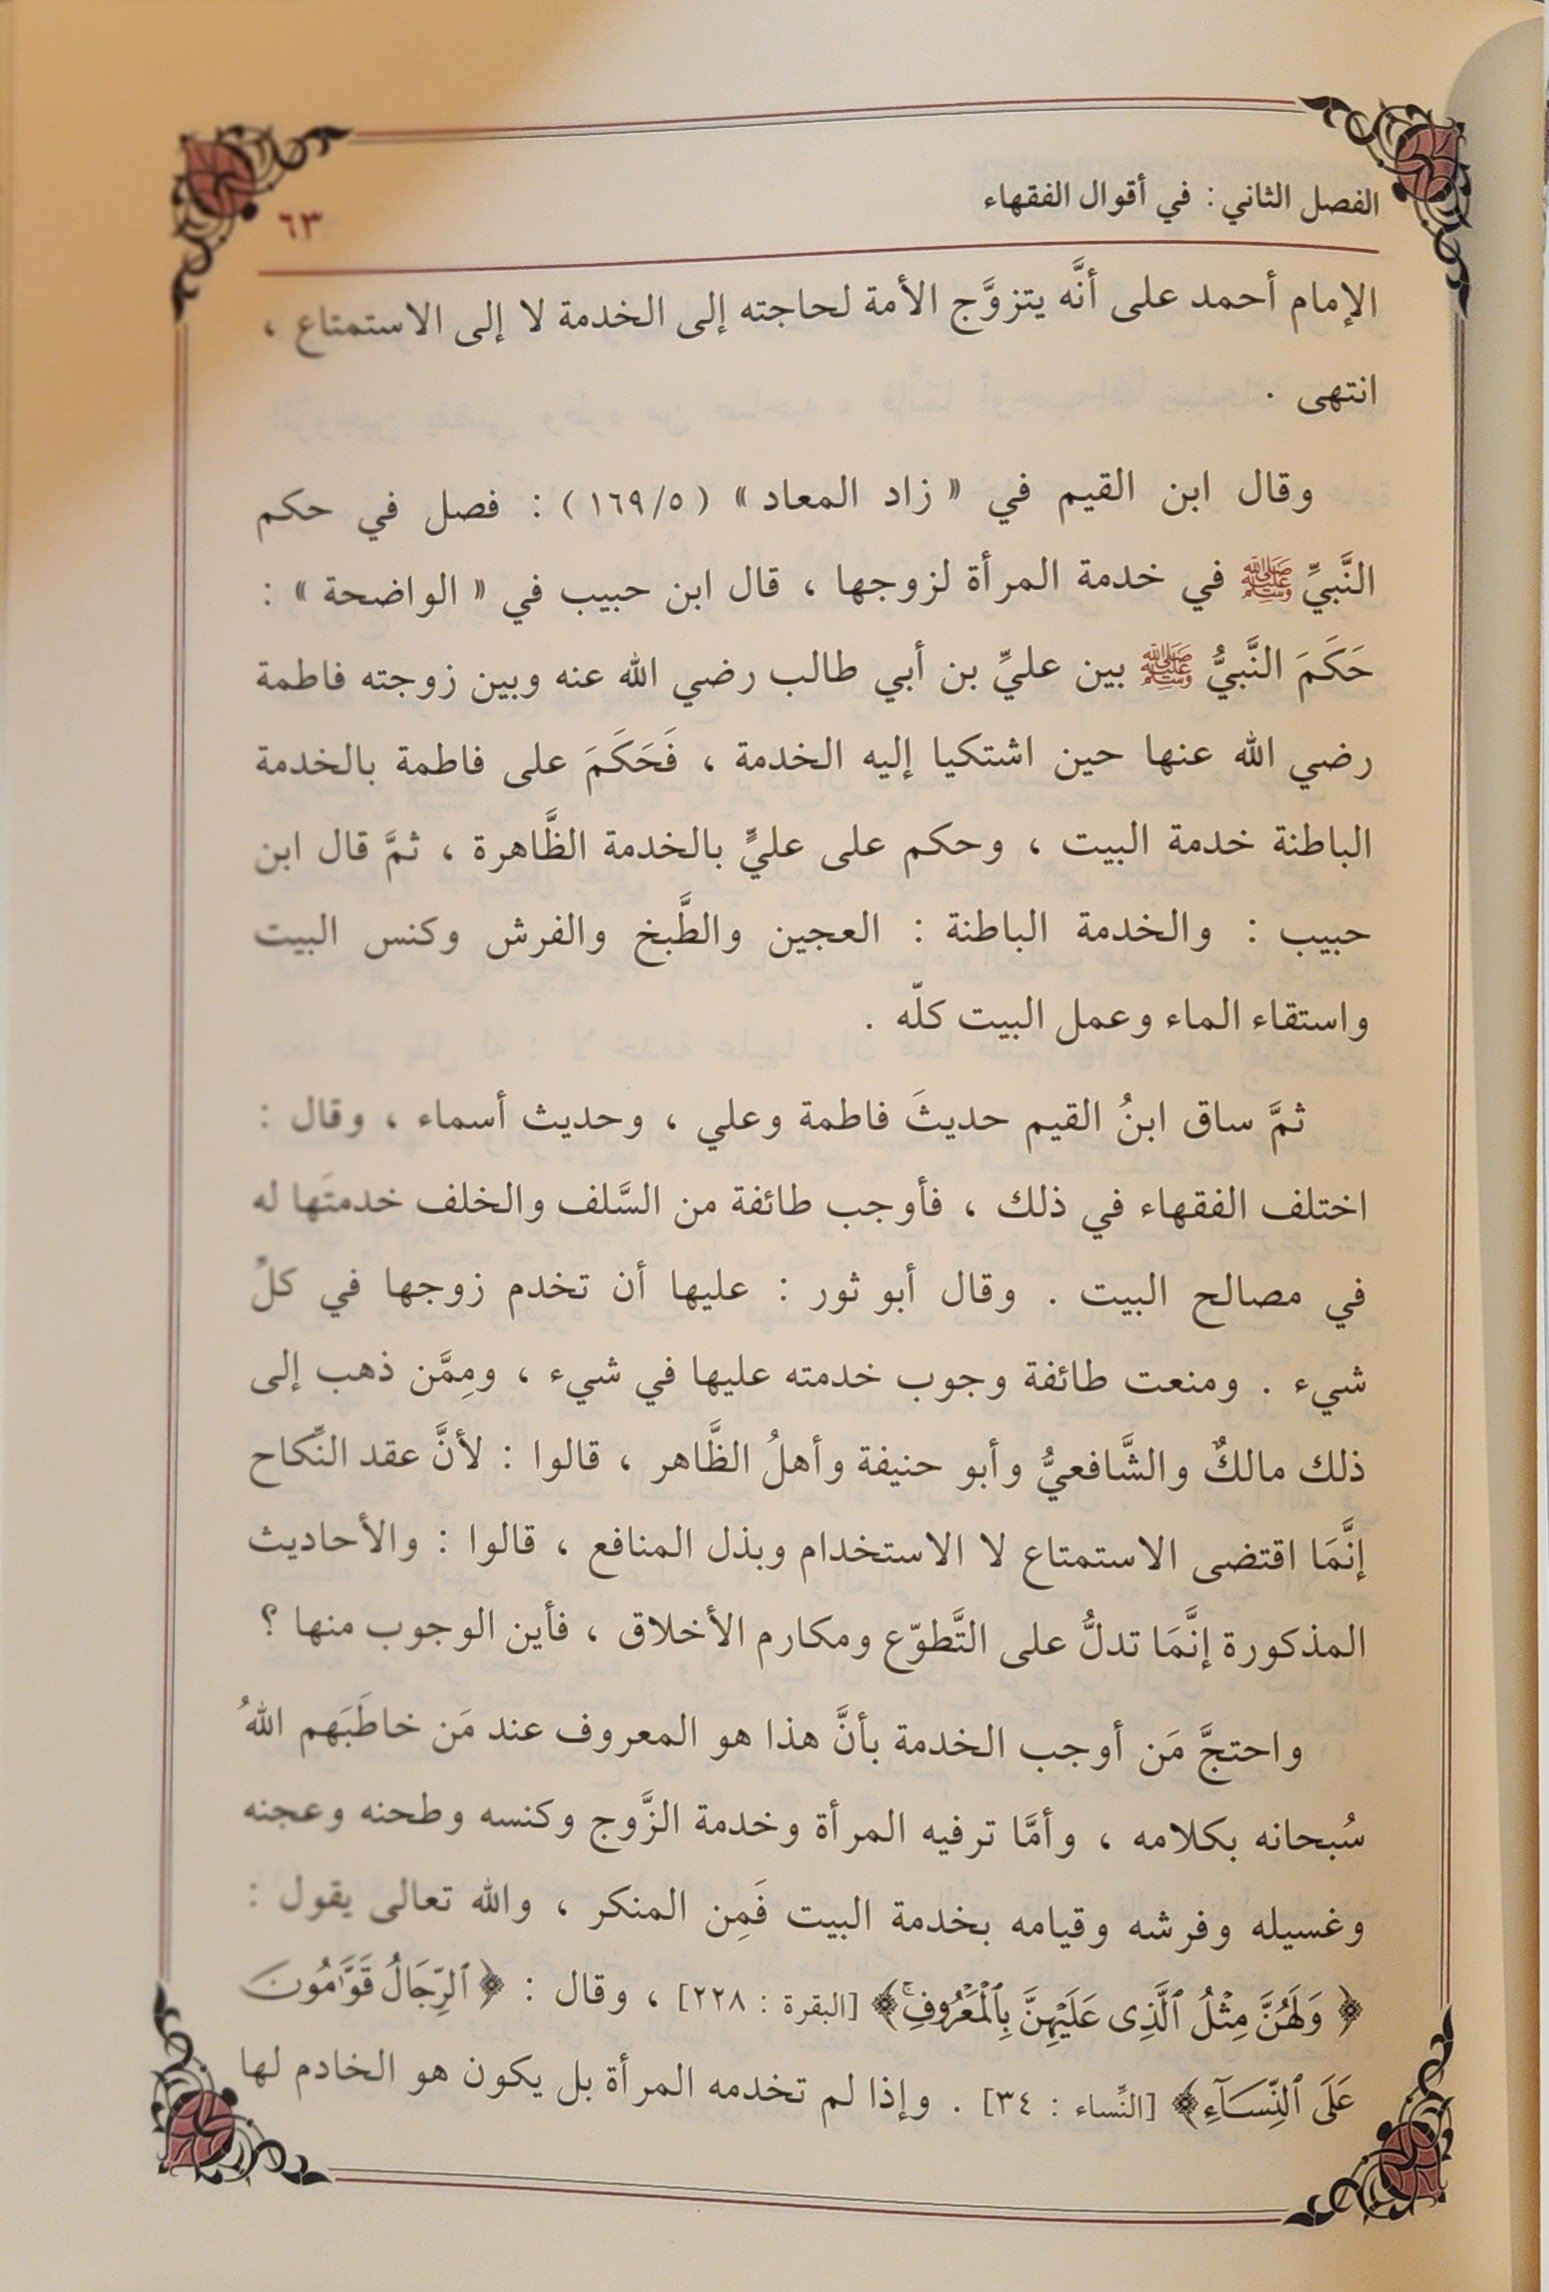 الفصل الثاني : في أقوال الفقهاء
٦٣
الإمام أحمد على أنَّه يتزوَّج الأمة لحاجته إلى الخدمة لا إلى الاستمتاع ،
انتهى .
وقال ابن القيم في « زاد المعاد » ( ١٦٩/٥ ) : فصل في حكم
النَّبيِّ ﷺ في خدمة المرأة لزوجها ، قال ابن حبيب في « الواضحة » :
حَكَمَ النَّبيُّ ﷺ بين عليِّ بن أبي طالب رضي الله عنه وبين زوجته فاطمة
رضي الله عنها حين اشتكيا إليه الخدمة ، فَحَكَمَ على فاطمة بالخدمة
الباطنة خدمة البيت ، وحكم على عليٍّ بالخدمة الظَّاهرة ، ثمَّ قال ابن
حبيب : والخدمة الباطنة : العجين والطَّبخ والفرش وكنس البيت
واستقاء الماء وعمل البيت كلّه .
ثمَّ ساق ابنُ القيم حديثَ فاطمة وعلي ، وحديث أسماء ، وقال :
اختلف الفقهاء في ذلك ، فأوجب طائفة من السَّلف والخلف خدمتَها له
في مصالح البيت . وقال أبو ثور : عليها أن تخدم زوجها في كلِّ
شيء . ومنعت طائفة وجوب خدمته عليها في شيء ، ومِمَّن ذهب إلى
ذلك مالكٌ والشَّافعيُّ وأبو حنيفة وأهلُ الظَّاهر ، قالوا : لأنَّ عقد النِّكاح
إنَّمَا اقتضى الاستمتاع لا الاستخدام وبذل المنافع ، قالوا : والأحاديث
المذكورة إنَّمَا تدلُّ على التَّطوّع ومكارم الأخلاق ، فأين الوجوب منها ؟
واحتجَّ مَن أوجب الخدمة بأنَّ هذا هو المعروف عند مَن خاطَبَهم اللهُ
سُبحانه بكلامه ، وأمَّا ترفيه المرأة وخدمة الزَّوج وكنسه وطحنه وعجنه
وغسيله وفرشه وقيامه بخدمة البيت فَمِن المنكر ، والله تعالى يقول :
﴿ وَلَهُنَّ مِثْلُ ٱلَّذِى عَلَيْهِنَّ بِٱلْمَعْرُوفِۚ ﴾ [البقرة : ٢٢٨] ، وقال : ﴿ ٱلرِّجَالُ قَوَّٰمُونَ
عَلَى ٱلنِّسَآءِ ﴾ [النِّساء : ٣٤] . وإذا لم تخدمه المرأة بل يكون هو الخادم لها